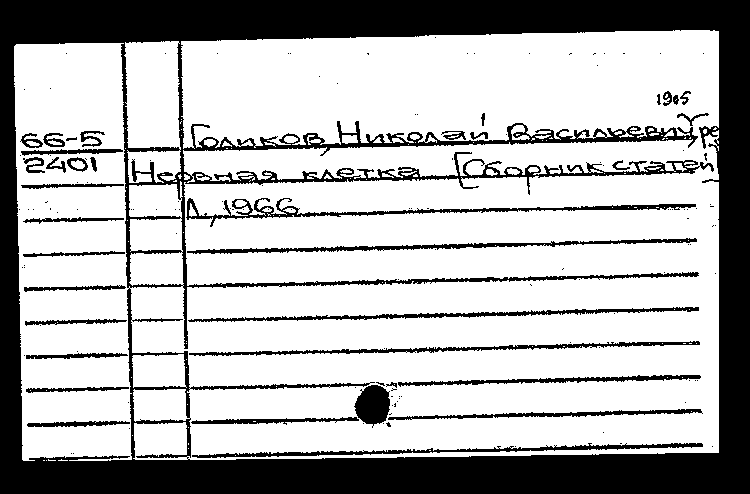 1905
66-5 Голиков, Николай Васильевич, ре
2401 Нервная клетка [Сборник статей]
Л., 1966